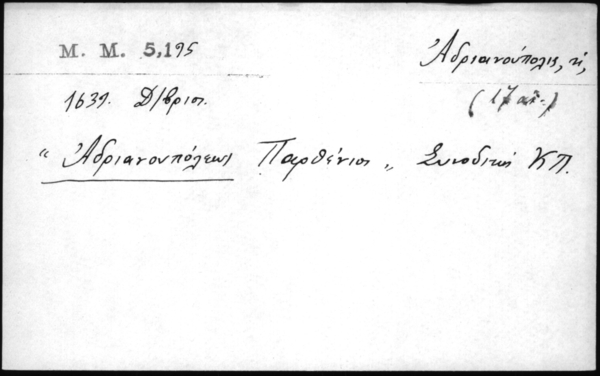 Μ. Μ. 5,195
Ἀδριανούπολις, ἡ,
1639. Δ/βριος.
(17 αἰ.)
"Ἀδριανουπόλεως Παρθένιος" Συνοδικῶς ΚΠ.